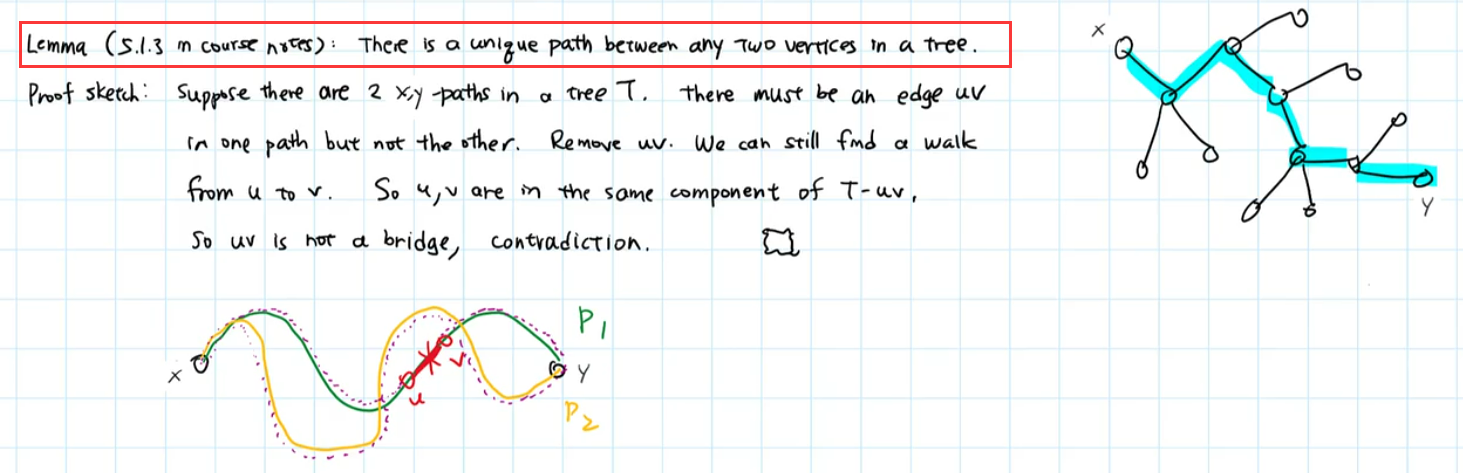 Lemma (5.1.3 in course notes): There is a unique path between any two vertices in a tree.
Proof sketch: Suppose there are 2 x,y-paths in a tree T. There must be an edge uv
in one path but not the other. Remove uv. We can still find a walk
from u to v. So u,v are in the same component of T-uv,
So uv is not a bridge, contradiction.
x
y
P1
x
u
v
y
P2